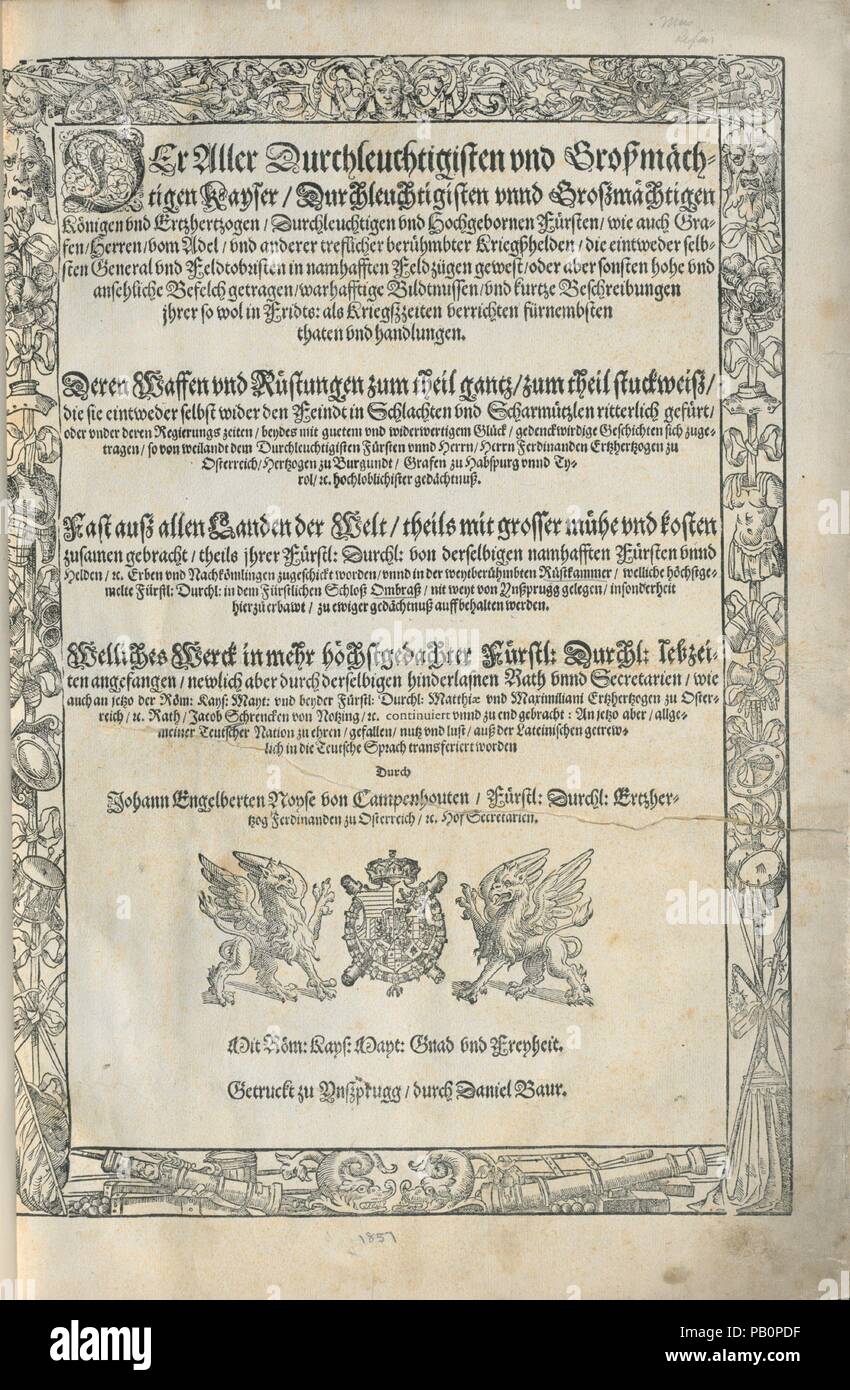 DEr Aller Durchleuchtigisten vnd Großmäch-
tigen Kayser / Durchleuchtigisten vnnd Großmächtigen
Königen vnd Ertzhertzogen / Durchleuchtigen vnd Hochgebornen Fürsten / wie auch Gra-
fen / Herren / vom Adel / vnd anderer treflicher berühmbter Kriegßhelden / die eintweder selb-
sten General vnd Feldtobristen in namhafften Feldzügen gewest / oder aber sonsten hohe vnd
ansehliche Befelch getragen / warhafftige Bildtnussen / vnd kurtze Beschreibungen
jhrer so wol in Fridts: als Kriegßzeiten verrichten fürnembsten
thaten vnd handlungen.
Deren Waffen vnd Rüstungen zum theil gantz / zum theil stuckweiß /
die sie eintweder selbst wider den Feindt in Schlachten vnd Scharmützlen ritterlich gefürt /
oder vnder deren Regierungs zeiten / beydes mit guetem vnd widerwertigem Glück / gedenckwirdige Geschichten sich zuge-
tragen / so von weilandt dem Durchleuchtigisten Fürsten vnnd Herrn / Herrn Ferdinanden Ertzhertzogen zu
Osterreich / Hertzogen zu Burgundt / Grafen zu Habspurg vnnd Ty-
rol / ꝛc. hochloblichister gedächtnuß.
Fast auß allen Landen der Welt / theils mit grosser mühe vnd kosten
zusamen gebracht / theils jhrer Fürstl: Durchl: von derselbigen namhafften Fürsten vnnd
Helden / ꝛc. Erben vnd Nachkömlingen zugeschickt worden / vnnd in der weytberühmbten Rüstkammer / welliche höchstge-
melte Fürstl: Durchl: in dem Fürstlichen Schloß Ombraß / nit weyt von Ynßprugg gelegen / insonderheit
hierzů erbawt / zu ewiger gedächtnuß auffbehalten werden.
Welliches Werck in mehr höchstgedachter Fürstl: Durchl: lebzei-
ten angefangen / newlich aber durch derselbigen hinderlaßnen Rath vnnd Secretarien / wie
auch an jetzo der Röm: Kays: Mayt: vnd beyder Fürstl: Durchl: Matthiæ vnd Maximiliani Ertzhertzogen zu Oster-
reich / ꝛc. Rath / Jacob Schrencken von Notzing / ꝛc. continuiert vnnd zu end gebracht: An jetzo aber / allge-
meiner Teutscher Nation zu ehren / gefallen / nutz vnd lust / auß der Lateinischen getrew-
lich in die Teutsche Sprach transferiert worden
Durch
Johann Engelberten Noyse von Campenhouten / Fürstl: Durchl: Ertzher-
tzog Ferdinanden zu Osterreich / ꝛc. Hof Secretarien.
Mit Röm: Kays: Mayt: Gnad vnd Freyheit.
Getruckt zu Ynßprugg / durch Daniel Baur.
1857
alamy
Image ID: PB0PDF
www.alamy.com